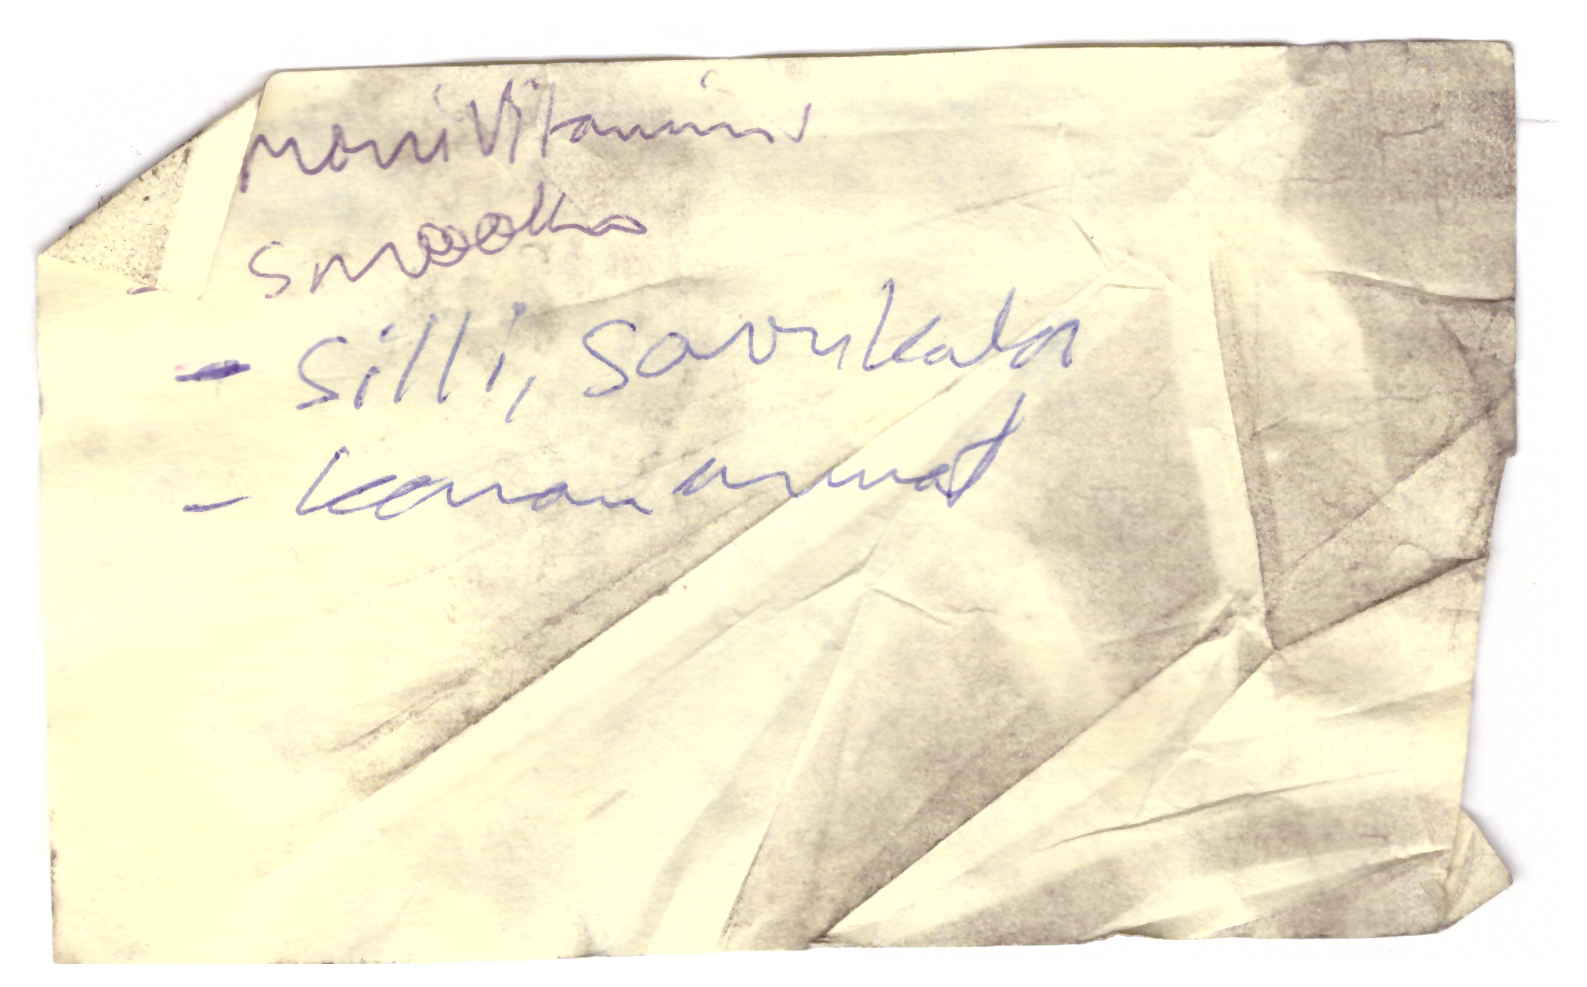 monivitamiini
- smoothie
- silli, savukala
- kananmunat